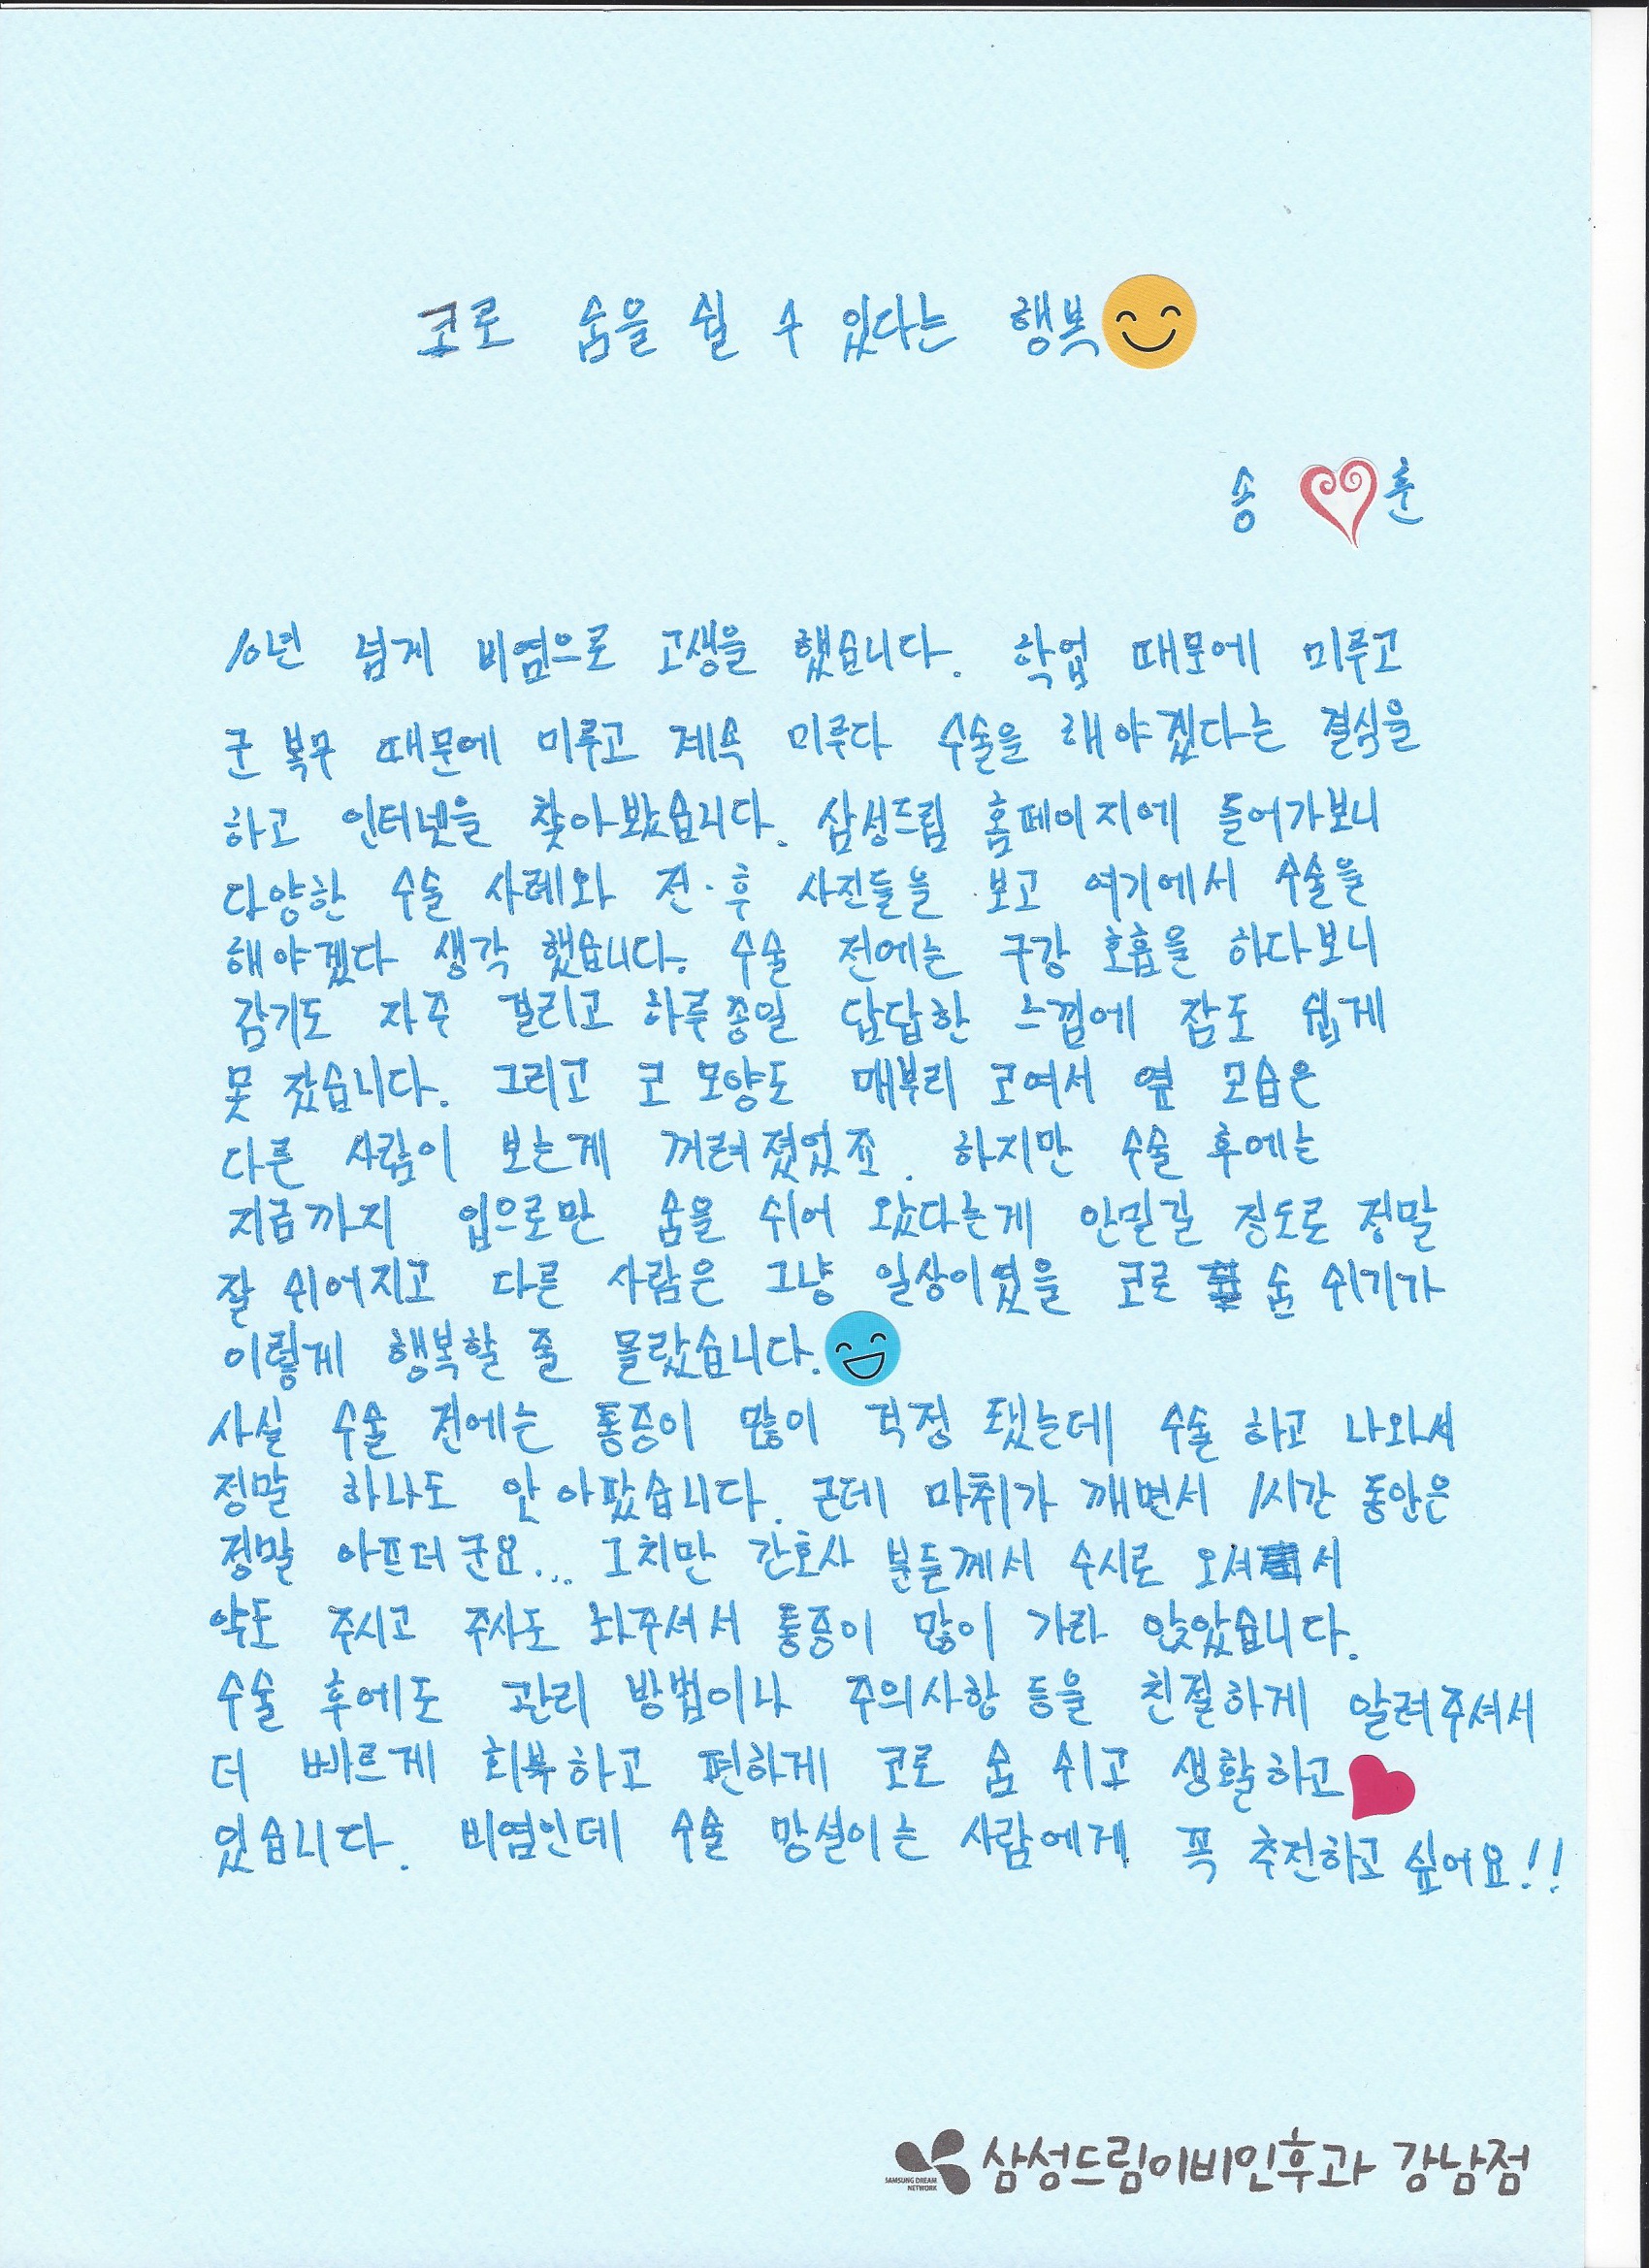 코로 숨을 쉴 수 있다는 행복
송 훈
10년 넘게 비염으로 고생을 했습니다. 학업 때문에 미루고
군 복무 때문에 미루고 계속 미루다 수술을 해야겠다는 결심을
하고 인터넷을 찾아봤습니다. 삼성드림 홈페이지에 들어가보니
다양한 수술 사례와 전·후 사진들을 보고 여기에서 수술을
해야겠다 생각 했습니다. 수술 전에는 구강 호흡을 하다보니
감기도 자주 걸리고 하루종일 답답한 느낌에 잠도 쉽게
못 잤습니다. 그리고 코 모양도 매부리 코여서 옆 모습은
다른 사람이 보는게 꺼려졌었죠. 하지만 수술 후에는
지금까지 입으로만 숨을 쉬어 왔다는게 안믿길 정도로 정말
잘 쉬어지고 다른 사람은 그냥 일상이었을 코로 숨 쉬기가
이렇게 행복할 줄 몰랐습니다.
사실 수술 전에는 통증이 많이 걱정 됐는데 수술 하고 나와서
정말 하나도 안 아팠습니다. 근데 마취가 깨면서 1시간 동안은
정말 아프더군요... 그치만 간호사 분들께서 수시로 오셔서
약도 주시고 주사도 놔주셔서 통증이 많이 가라 앉았습니다.
수술 후에도 관리 방법이나 주의사항 등을 친절하게 알려주셔서
더 빠르게 회복하고 편하게 코로 숨 쉬고 생활하고
있습니다. 비염인데 수술 망설이는 사람에게 꼭 추천하고 싶어요!!
SAMSUNG DREAM
NETWORK
삼성드림이비인후과 강남점